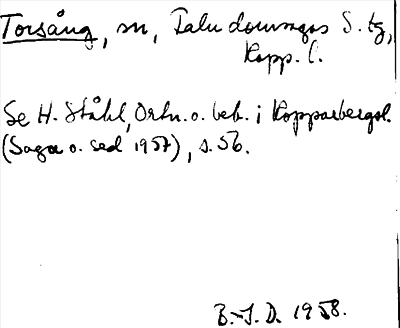 Torsång, sn, Falu domsagas S. tg,
Kopp. l.
Se H. Ståhl, Ortn. o. beb. i Kopparbergsl.
(Saga o. sed 1957), s. 56.
B.-J. D. 1958.